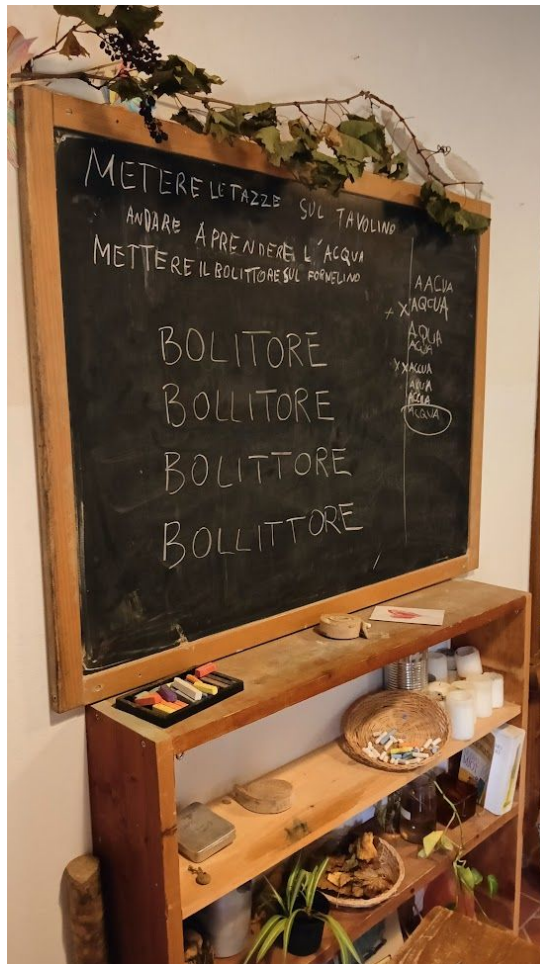 METERE LE TAZZE SUL TAVOLINO
ANDARE A PRENDERE L'ACQUA
METTERE IL BOLITTORE SUL FORNELINO
BOLITORE
BOLLITORE
BOLITTORE
BOLLITTORE
AACUA
X AQCUA
AQUA
ACUA
XX ACCUA
ACQUA